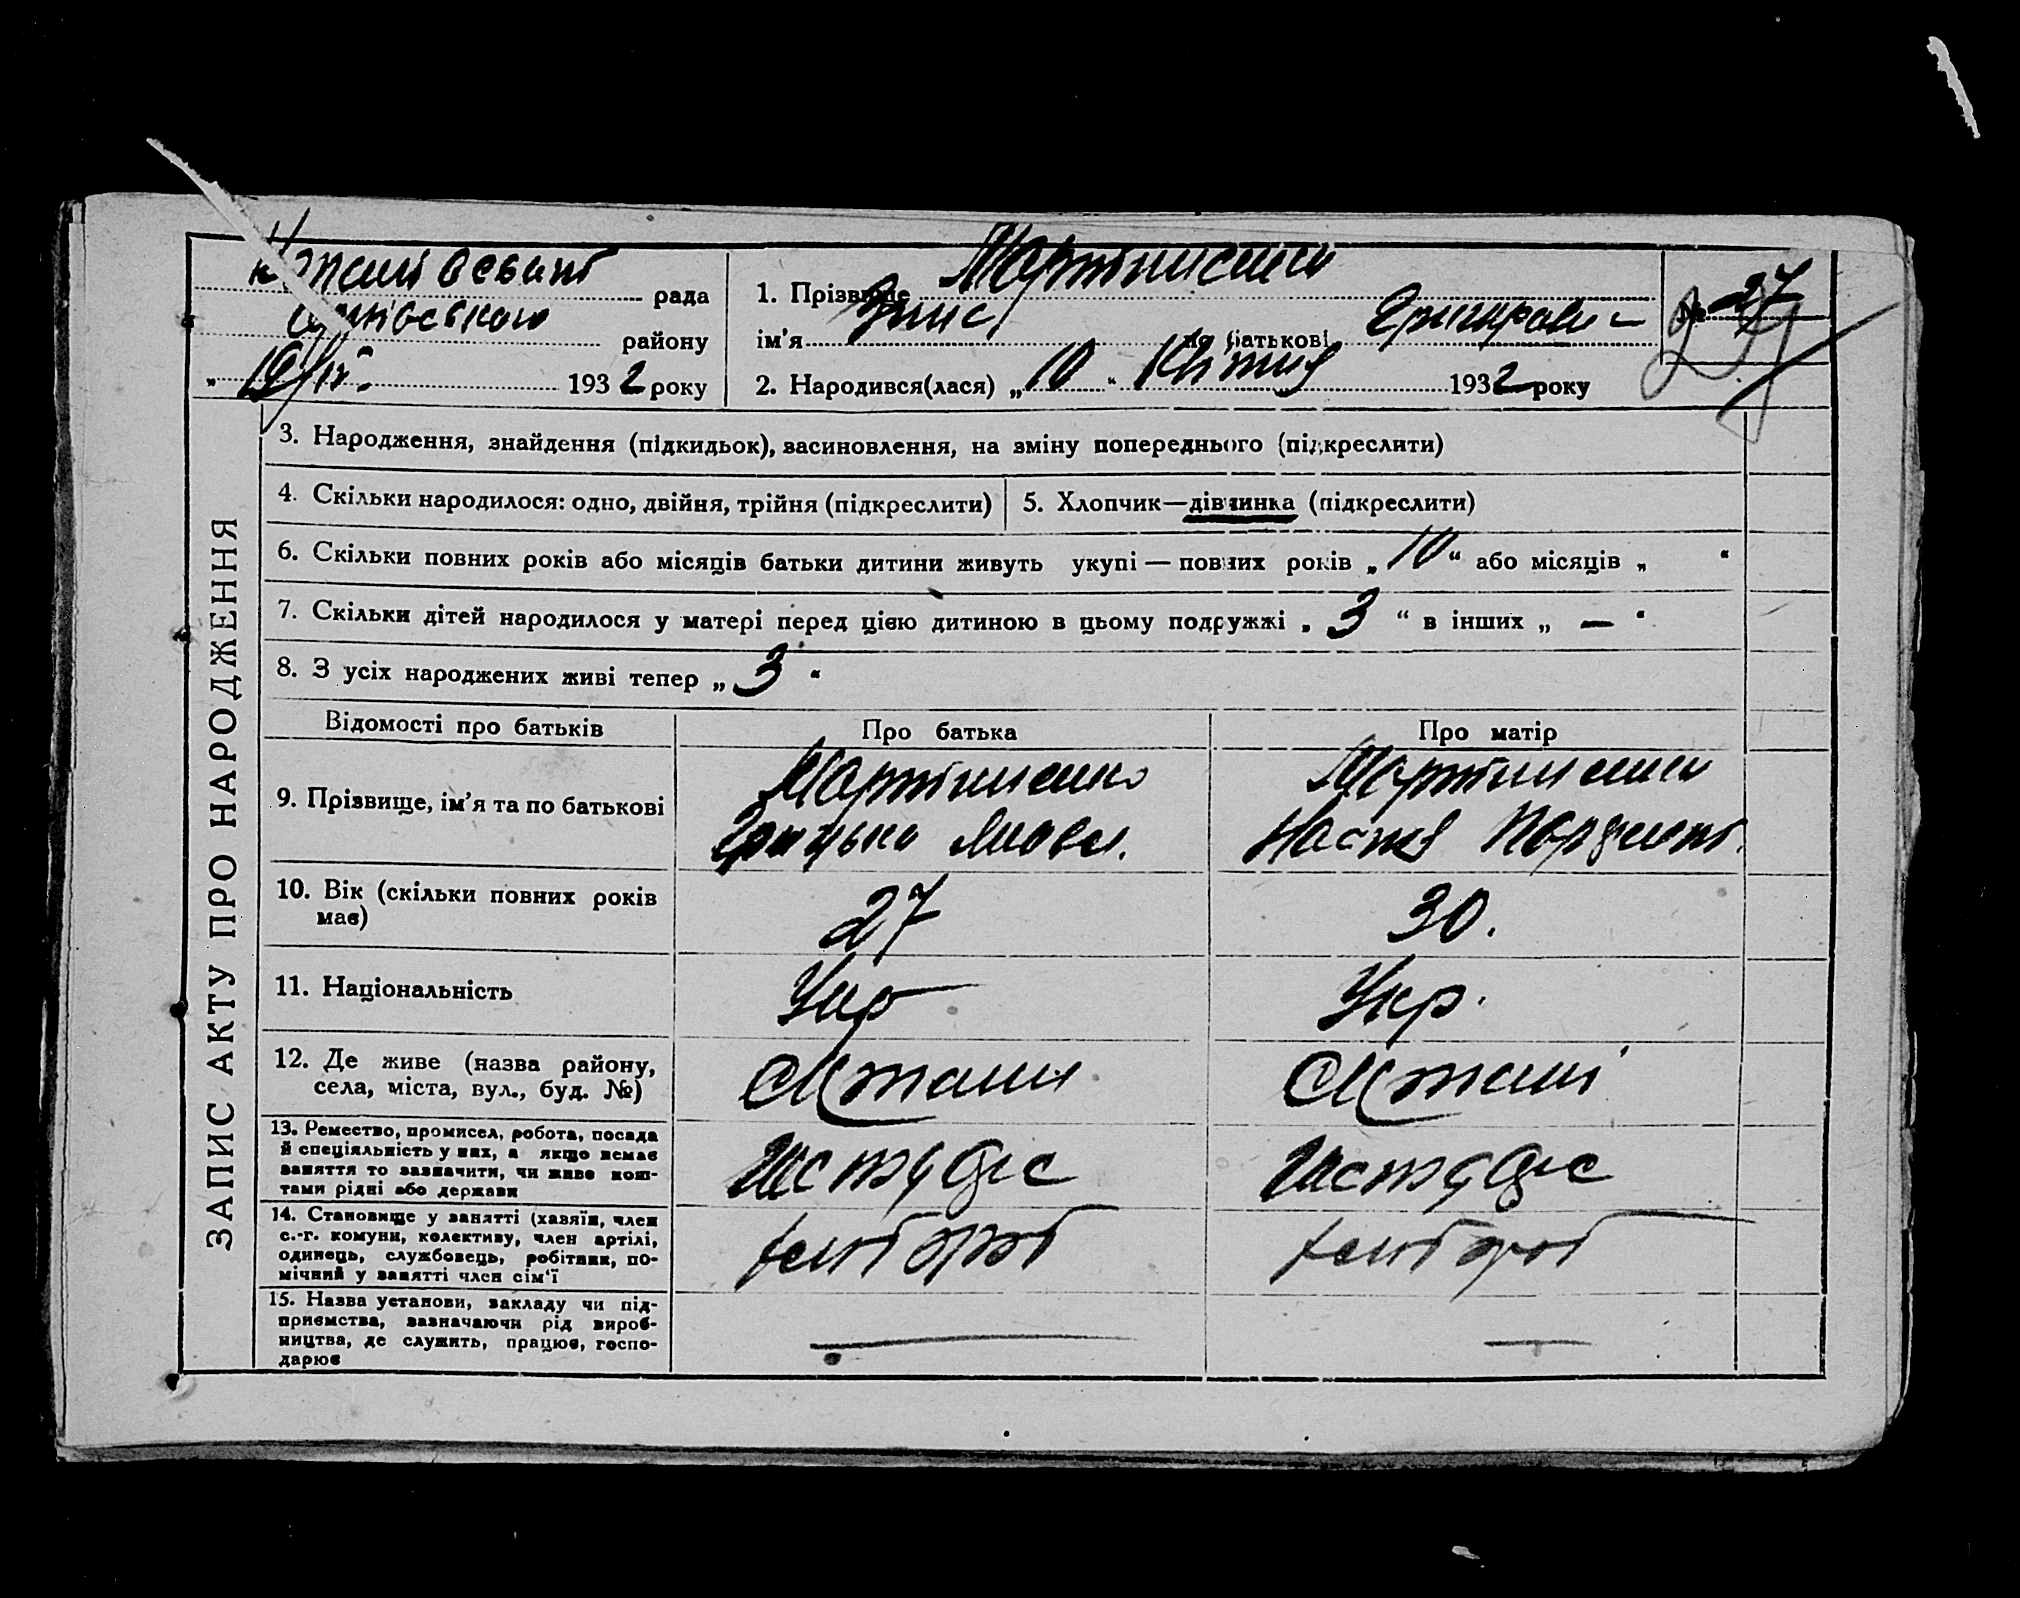 рада
району
193 2 року
1. Прізвище
ім'я по батькові
№ 27
2. Народився(лася) „10“ Квітня 1932 року
ЗАПИС АКТУ ПРО НАРОДЖЕННЯ
3. Народження, знайдення (підкидьок), васиновлення, на зміну попереднього (підкреслити)
4. Скільки народилося: одно, двійня, трійня (підкреслити)
5. Хлопчик—дівчинка (підкреслити)
6. Скільки повних років або місяців батьки дитини живуть укупі — повних років „10“ або місяців „ “
7. Скільки дітей народилося у матері перед цією дитиною в цьому подружжі „ 3 “ в інших „ — “
8. З усіх народжених живі тепер „ 3 “
Відомості про батьків
Про батька
Про матір
9. Прізвище, ім'я та по батькові
Грицько
Настя
10. Вік (скільки повних років
має)
27
30.
11. Національність
Укр
Укр.
12. Де живе (назва району,
села, міста, вул., буд. №)
13. Ремество, промисел, робота, посада
й спеціяльність у них, а якщо немає
заняття то зазначити, чи живе кош-
тами рідні або держави
14. Становище у занятті (хазяїн, член
с.-г. комуни, колективу, член артілі,
одинець, службовець, робітник, по-
мічний у занятті член сім'ї
15. Назва установи, закладу чи під-
приємства, зазначаючи рід вироб-
ництва, де служить, працює, госпо-
дарює